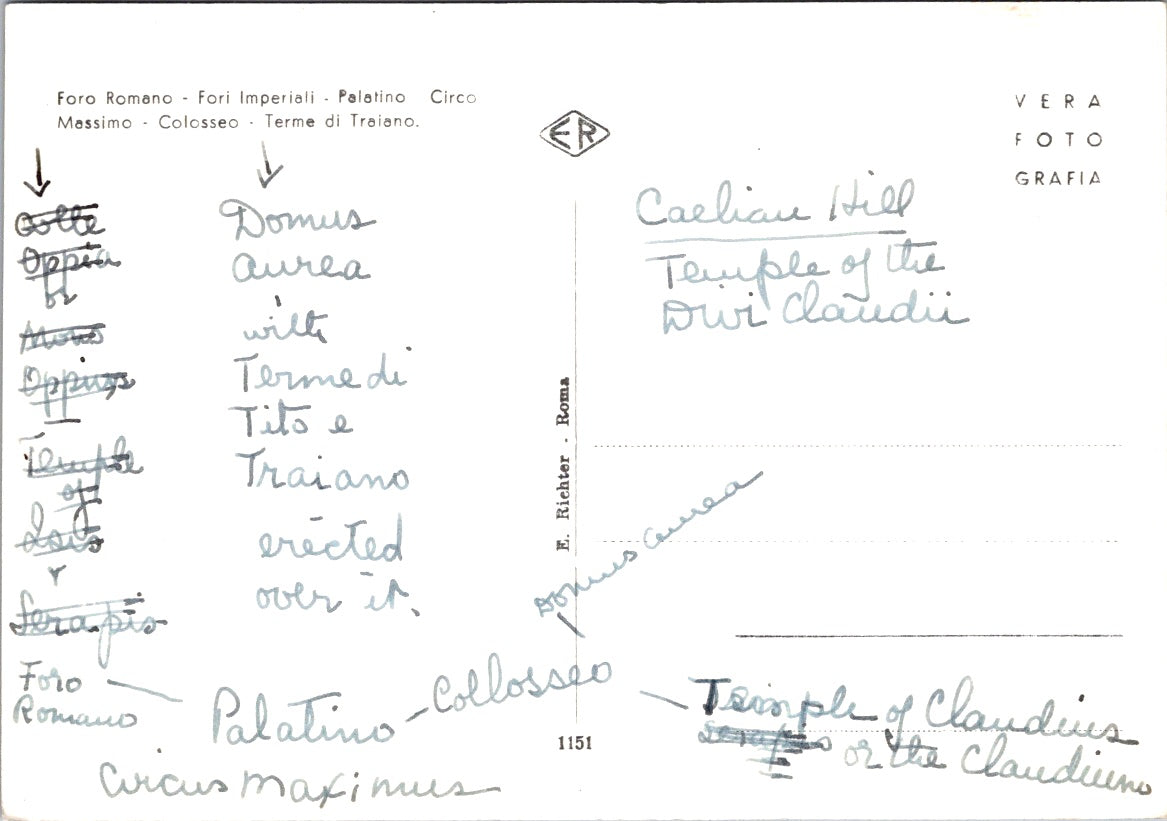 Foro Romano - Fori Imperiali - Palatino Circo
Massimo - Colosseo - Terme di Traiano.
ER
VERA
FOTO
GRAFIA
Colle
Oppia
or
Mons
Oppius
Temple
of
Isis
Serapis
Domus
aurea
with
Terme di
Tito e
Traiano
erected
over it.
Caelian Hill
Temple of the
Divi Claudii
E. Richter - Roma
Domus aurea
Foro
Romano
Palatino
Collosseo
Circus Maximus
1151
Temple of Claudius
Serapis or the Claudiuno